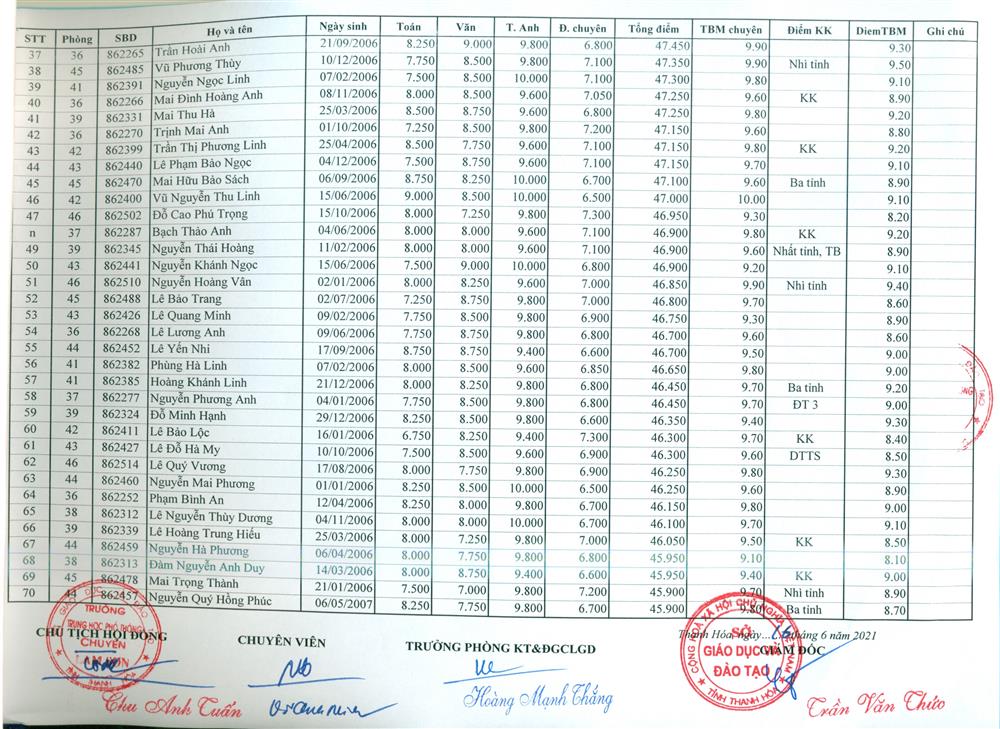 STT Phòng SBD Họ và tên Ngày sinh Toán Văn T. Anh Đ. chuyên Tổng điểm TBM chuyên Điểm KK DiemTBM Ghi chú
37 36 862265 Trần Hoài Anh 21/09/2006 8.250 9.000 9.800 6.800 47.450 9.90 9.30
38 45 862485 Vũ Phương Thùy 10/12/2006 7.750 8.500 9.800 7.100 47.350 9.90 Nhì tỉnh 9.50
39 41 862391 Nguyễn Ngọc Linh 07/02/2006 7.500 8.500 10.000 7.100 47.300 9.80 9.10
40 36 862266 Mai Đình Hoàng Anh 08/11/2006 8.000 8.500 9.600 7.050 47.250 9.60 KK 8.90
41 39 862331 Mai Thu Hà 25/03/2006 8.500 8.750 9.600 6.800 47.250 9.80 9.20
42 36 862270 Trịnh Mai Anh 01/10/2006 7.250 8.500 9.800 7.200 47.150 9.60 8.80
43 42 862399 Trần Thị Phương Linh 25/04/2006 8.500 7.750 9.600 7.100 47.150 9.80 KK 9.20
44 43 862440 Lê Phạm Bảo Ngọc 04/12/2006 7.500 8.750 9.600 7.100 47.150 9.70 9.10
45 45 862470 Mai Hữu Bảo Sách 06/09/2006 8.750 8.250 10.000 6.700 47.100 9.60 Ba tỉnh 8.90
46 42 862400 Vũ Nguyễn Thu Linh 15/06/2006 9.000 8.500 10.000 6.500 47.000 10.00 9.10
47 46 862502 Đỗ Cao Phú Trọng 15/10/2006 8.000 7.250 9.800 7.300 46.950 9.30 8.20
n 37 862287 Bạch Thảo Anh 04/06/2006 8.000 8.000 9.600 7.100 46.900 9.80 KK 9.20
49 39 862345 Nguyễn Thái Hoàng 11/02/2006 8.000 8.000 9.600 7.100 46.900 9.60 Nhất tỉnh, TB 8.90
50 43 862441 Nguyễn Khánh Ngọc 15/06/2006 7.500 9.000 10.000 6.800 46.900 9.20 9.10
51 46 862510 Nguyễn Hoàng Vân 02/01/2006 8.000 8.250 9.600 7.000 46.850 9.90 Nhì tỉnh 9.40
52 45 862488 Lê Bảo Trang 02/07/2006 7.250 8.750 9.800 7.000 46.800 9.70 8.60
53 43 862426 Lê Quang Minh 09/02/2006 7.750 8.500 9.800 6.900 46.750 9.30 8.90
54 36 862268 Lê Lương Anh 09/06/2006 7.750 8.750 9.800 6.800 46.700 9.60 8.60
55 44 862452 Lê Yến Nhi 17/09/2006 8.750 8.750 9.400 6.600 46.700 9.50 9.00
56 41 862382 Phùng Hà Linh 07/02/2006 8.000 8.500 9.600 6.850 46.650 9.80 9.00
57 41 862385 Hoàng Khánh Linh 21/12/2006 8.000 8.250 9.800 6.800 46.450 9.70 Ba tỉnh 9.20
58 37 862277 Nguyễn Phương Anh 04/01/2006 7.750 8.500 9.800 6.800 46.450 9.70 ĐT 3 9.00
59 39 862324 Đỗ Minh Hạnh 29/12/2006 8.250 8.500 9.800 6.600 46.350 9.40 9.30
60 42 862411 Lê Bảo Lộc 16/01/2006 6.750 8.250 9.400 7.300 46.300 9.70 KK 8.40
61 43 862427 Lê Đỗ Hà My 10/10/2006 7.500 8.500 9.600 6.900 46.300 9.60 DTTS 8.50
62 46 862514 Lê Quý Vương 17/08/2006 8.000 7.750 9.800 6.900 46.250 9.80 9.30
63 44 862460 Nguyễn Mai Phương 01/01/2006 8.250 8.500 10.000 6.500 46.250 9.60 8.90
64 36 862252 Phạm Bình An 12/04/2006 8.250 8.000 9.800 6.700 46.150 9.80 9.00
65 38 862312 Lê Nguyễn Thùy Dương 04/11/2006 8.000 8.000 10.000 6.700 46.100 9.70 9.10
66 39 862339 Lê Hoàng Trung Hiếu 25/03/2006 8.000 7.250 9.800 7.000 46.050 9.50 KK 8.50
67 44 862459 Nguyễn Hà Phương 06/04/2006 8.000 7.750 9.800 6.800 45.950 9.10 8.10
68 38 862313 Đàm Nguyễn Anh Duy 14/03/2006 8.000 8.750 9.400 6.600 45.950 9.40 KK 9.00
69 45 862478 Mai Trọng Thành 21/01/2006 7.500 7.000 9.800 7.200 45.950 9.70 Nhì tỉnh 8.90
70 44 862457 Nguyễn Quý Hồng Phúc 06/05/2007 8.250 7.750 9.800 6.700 45.900 9.80 Ba tỉnh 8.70
Thanh Hóa, ngày... 16 tháng 6 năm 2021
CHỦ TỊCH HỘI ĐỒNG CHUYÊN VIÊN TRƯỞNG PHÒNG KT&ĐGCLGD GIÁM ĐỐC
TRƯỜNG
TRUNG HỌC PHỔ THÔNG
CHUYÊN
LAM SƠN
CỘNG HOÀ XÃ HỘI CHỦ NGHĨA VIỆT NAM
SỞ
GIÁO DỤC VÀ
ĐÀO TẠO
TỈNH THANH HÓA
Chu Anh Tuấn Hoàng Mạnh Thắng Trần Văn Thức